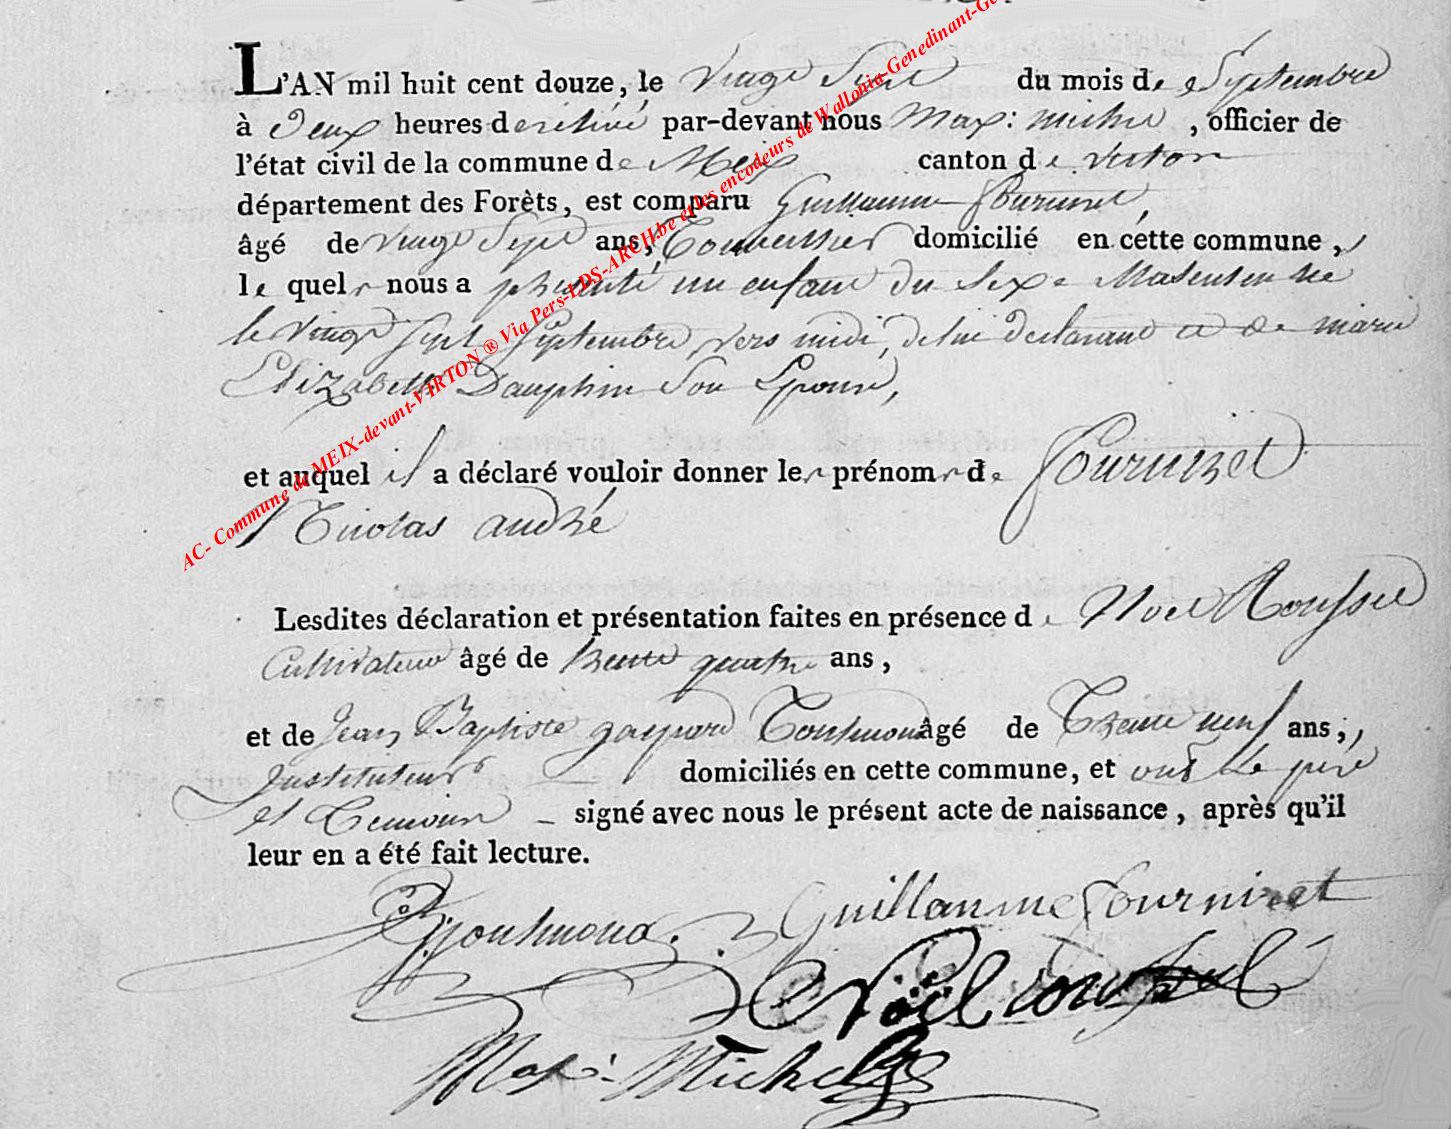 L'AN mil huit cent douze, le vingt Sept du mois de Septembre
à deux heures de relévé par-devant nous Max: Michel, officier de
l'état civil de la commune de Meix canton de virton
département des Forêts, est comparu Guillaume fourninet,
âgé de vingt Sept ans, domicilié en cette commune,
le quel nous a présenté un enfant du Sexe Masculin né
le vingt Sept Septembre vers midi, de lui déclarant et de marie
Elizabeth Dauphin Son Epouse,
et auquel il a déclaré vouloir donner les prénoms de fourninet
Nicolas andré
Lesdites déclaration et présentation faites en présence de Noel Roussel
Cultivateur âgé de trente quatre ans,
et de Jean Baptiste gaspard âgé de Trente neuf ans;,
Instituteur domiciliés en cette commune, et ont le pere
et Temoins signé avec nous le présent acte de naissance, après qu'il
leur en a été fait lecture.
Guillaume fourninet
Noël roussel
Max: Michel
AC- Commune de MEIX-devant-VIRTON ® Via Pers-LDS-ARCH.be et les encodeurs de Wallonia-Genedinant-Ge